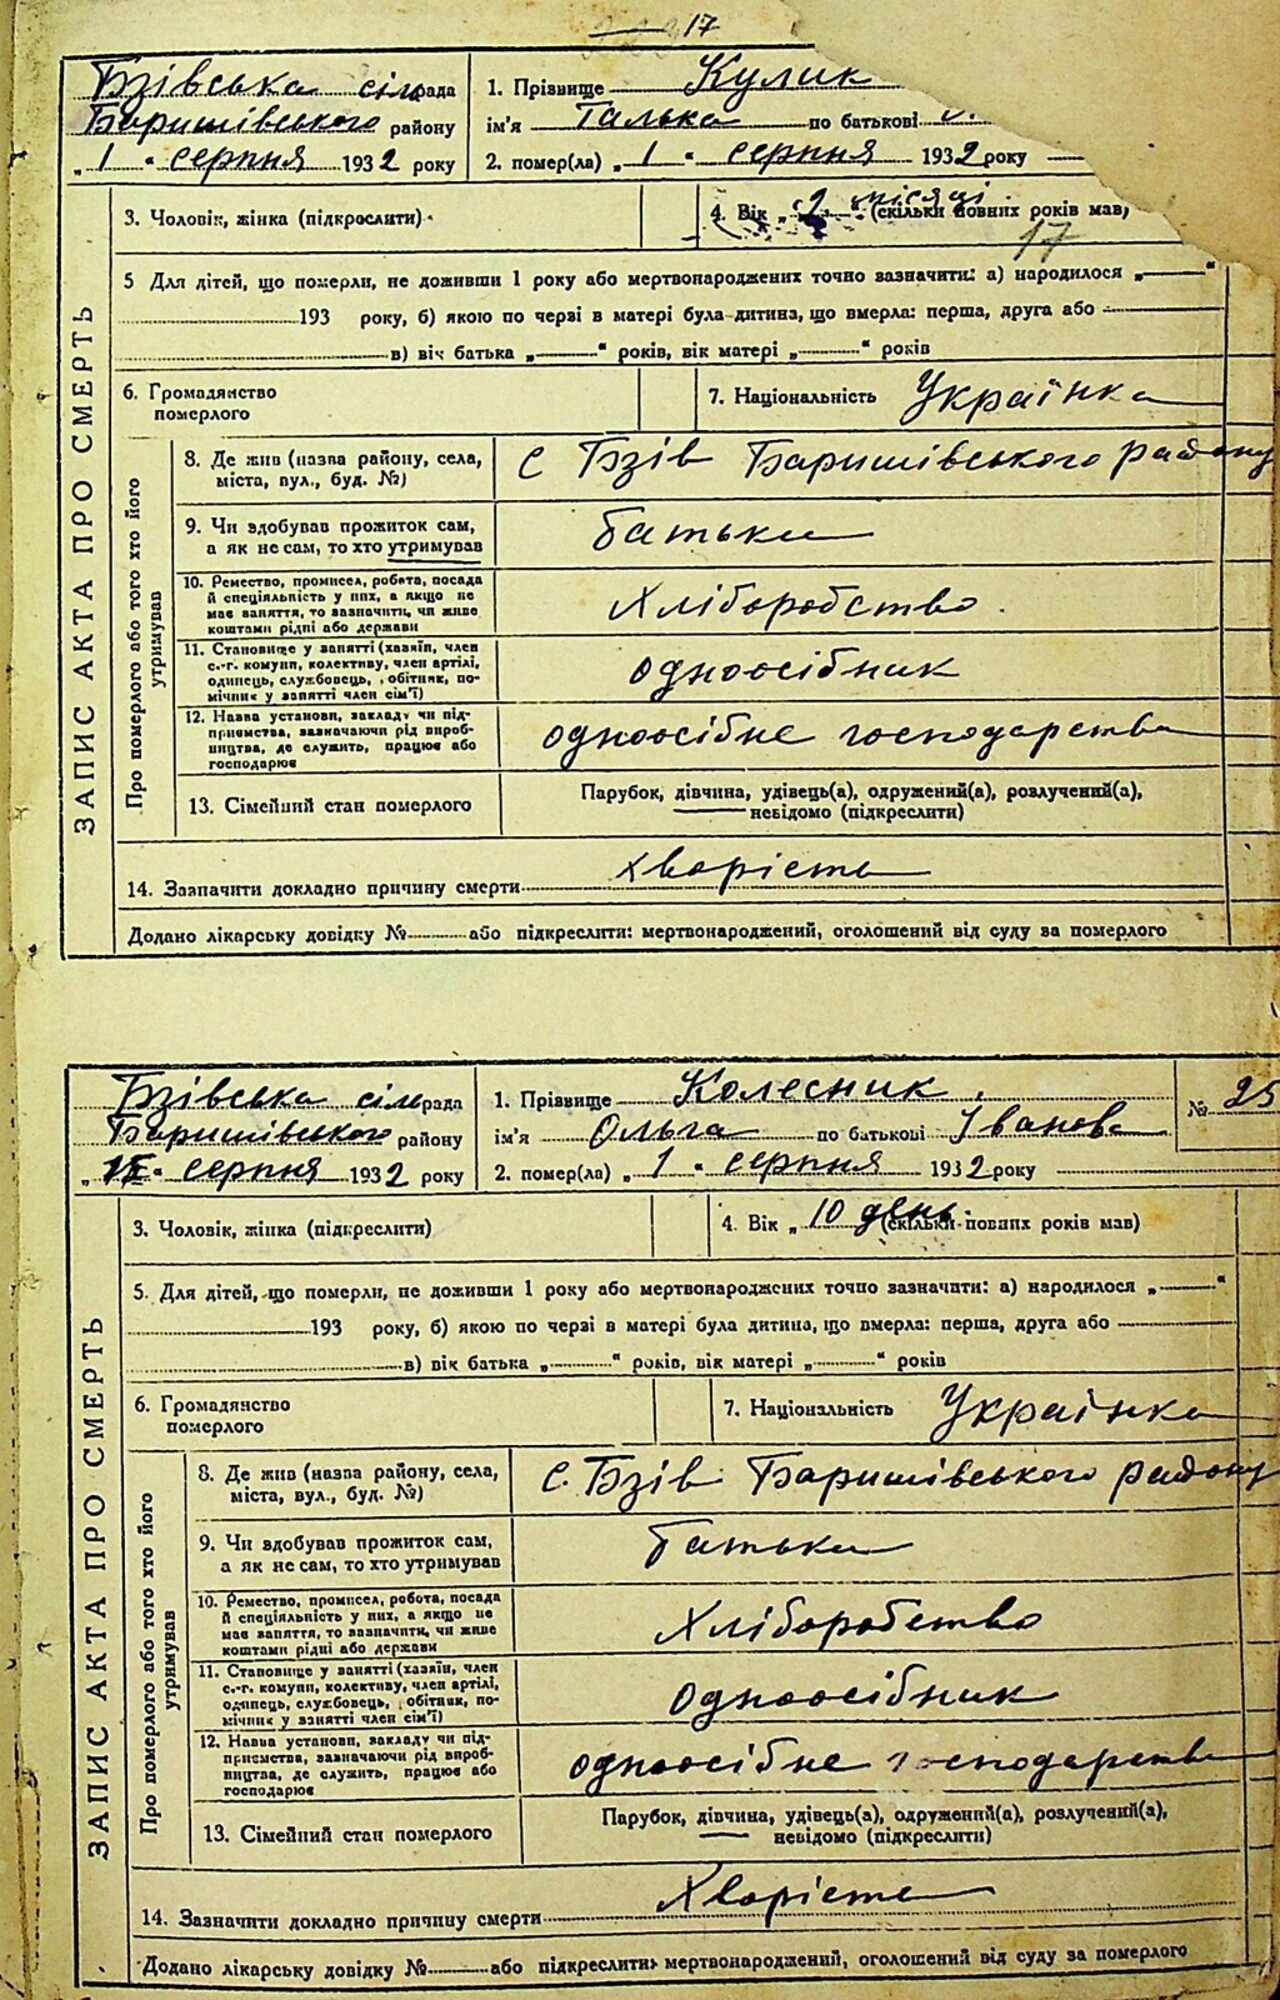 17
Бзівська сільрада
Баришівського району
„1“ серпня 1932 року
1. Прізвище Кулик
ім'я Галька по батькові
2. помер(ла) „1“ серпня 1932 року
3. Чоловік, жінка (підкреслити)
4. Вік „2 місяці“ (скільки повних років мав)
17
5 Для дітей, що померли, не доживши 1 року або мертвонароджених точно зазначити: а) народилося „ “
193 року, б) якою по черзі в матері була дитина, що вмерла: перша, друга або
в) вік батька „ “ років, вік матері „ “ років
6. Громадянство
померлого
7. Національність Українка
ЗАПИС АКТА ПРО СМЕРТЬ
Про померлого або того хто його
утримував
8. Де жив (назва району, села,
міста, вул., буд. №)
с Бзів Баришівського району
9. Чи здобував прожиток сам,
а як не сам, то хто утримував
батьки
10. Ремество, промисел, робота, посада
й спеціяльність у них, а якщо не
має заняття, то зазначити, чи живе
коштами рідні або держави
Хліборобство
11. Становище у занятті (хазяїн, член
с.-г. комуни, колективу, член артілі,
одинець, службовець, обітник, по-
мічник у занятті член сім'ї)
одноосібник
12. Назва установи, закладу чи під-
приємства, зазначаючи рід вироб-
ництва, де служить, працює або
господарює
одноосібне господарство
13. Сімейний стан померлого
Парубок, дівчина, удівець(а), одружений(а), розлучений(а),
невідомо (підкреслити)
14. Зазначити докладно причину смерти Хворість
Додано лікарську довідку № або підкреслити: мертвонароджений, оголошений від суду за померлого
Бзівська сільрада
Баришівського району
серпня 1932 року
1. Прізвище Колесник
ім'я Ольга по батькові Іванова
2. помер(ла) „1“ серпня 1932 року
№ 25
3. Чоловік, жінка (підкреслити)
4. Вік „10 день“ (скільки повних років мав)
5. Для дітей, що померли, не доживши 1 року або мертвонароджених точно зазначити: а) народилося „ “
193 року, б) якою по черзі в матері була дитина, що вмерла: перша, друга або
в) вік батька „ “ років, вік матері „ “ років
6. Громадянство
померлого
7. Національність Українка
ЗАПИС АКТА ПРО СМЕРТЬ
Про померлого або того хто його
утримував
8. Де жив (назва району, села,
міста, вул., буд. №)
с. Бзів Баришівського району
9. Чи здобував прожиток сам,
а як не сам, то хто утримував
батьки
10. Ремество, промисел, робота, посада
й спеціяльність у них, а якщо не
має заняття, то зазначити, чи живе
коштами рідні або держави
Хліборобство
11. Становище у занятті (хазяїн, член
с.-г. комуни, колективу, член артілі,
одинець, службовець, обітник, по-
мічник у занятті член сім'ї)
одноосібник
12. Назва установи, закладу чи під-
приємства, зазначаючи рід вироб-
ництва, де служить, працює або
господарює
одноосібне господарство
13. Сімейний стан померлого
Парубок, дівчина, удівець(а), одружений(а), розлучений(а),
невідомо (підкреслити)
14. Зазначити докладно причину смерти Хворість
Додано лікарську довідку № або підкреслити: мертвонароджений, оголошений від суду за померлого